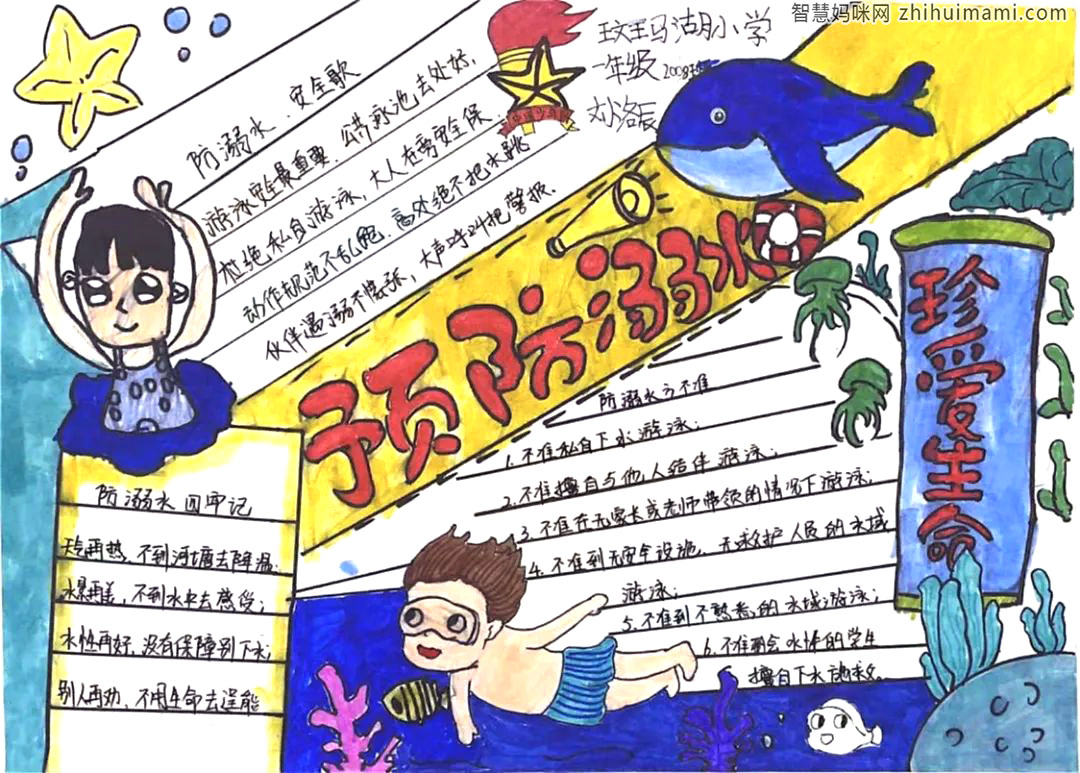 智慧妈咪网 zhihuimami.com
玟王马湖小学
一年级 2008班
刘洛辰
防溺水.安全歌
游泳安全最重要,公共泳池去处好,
杜绝私自游泳,大人在旁安全保.
动作规范不乱跑,高处绝不把水跳
伙伴遇溺不慌张,大声呼叫把警报.
预防溺水
珍爱生命
防溺水六不准
1.不准私自下水游泳;
2.不准擅自与他人结伴游泳;
3.不准在无家长或老师带领的情况下游泳;
4.不准到无安全设施、无救护人员的水域
游泳;
5.不准到不熟悉的水域游泳;
6.不准不会水性的学生
擅自下水施救.
防溺水四牢记
天气再热,不到河塘去降温;
水景再美,不到水中去感受;
水性再好,没有保障别下水;
别人再劝,不用生命去逞能